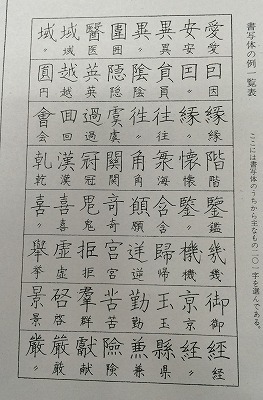 書写体の例一覧表
ここには書写体のうちから主なもの一〇一字を選んである。
愛 安 異 異 圍 醫 域 域
愛 安 異 〃 囲 医 域 〃
囙 囙 員 陰 隠 英 越 圓
因 〃 員 陰 隠 英 越 円
縁 縁 徃 徃 虞 過 囬 會
縁 〃 往 〃 虞 過 回 会
階 懐 角 關 冠 漢 乹
階 懐 海 角 関 冠 漢 乾
含 竒 鬼 喜
鑑 〃 含 願 奇 鬼 喜 〃
機 宮 拒 虚 舉
幾 機 帰 逆 宮 拒 虚 挙
御 亰 玉 勤 苦 羣 啓 景
御 京 玉 勤 苦 群 啓 景
経 経 縣 兼 險 獻 厳 厳
経 〃 県 兼 険 献 厳 〃